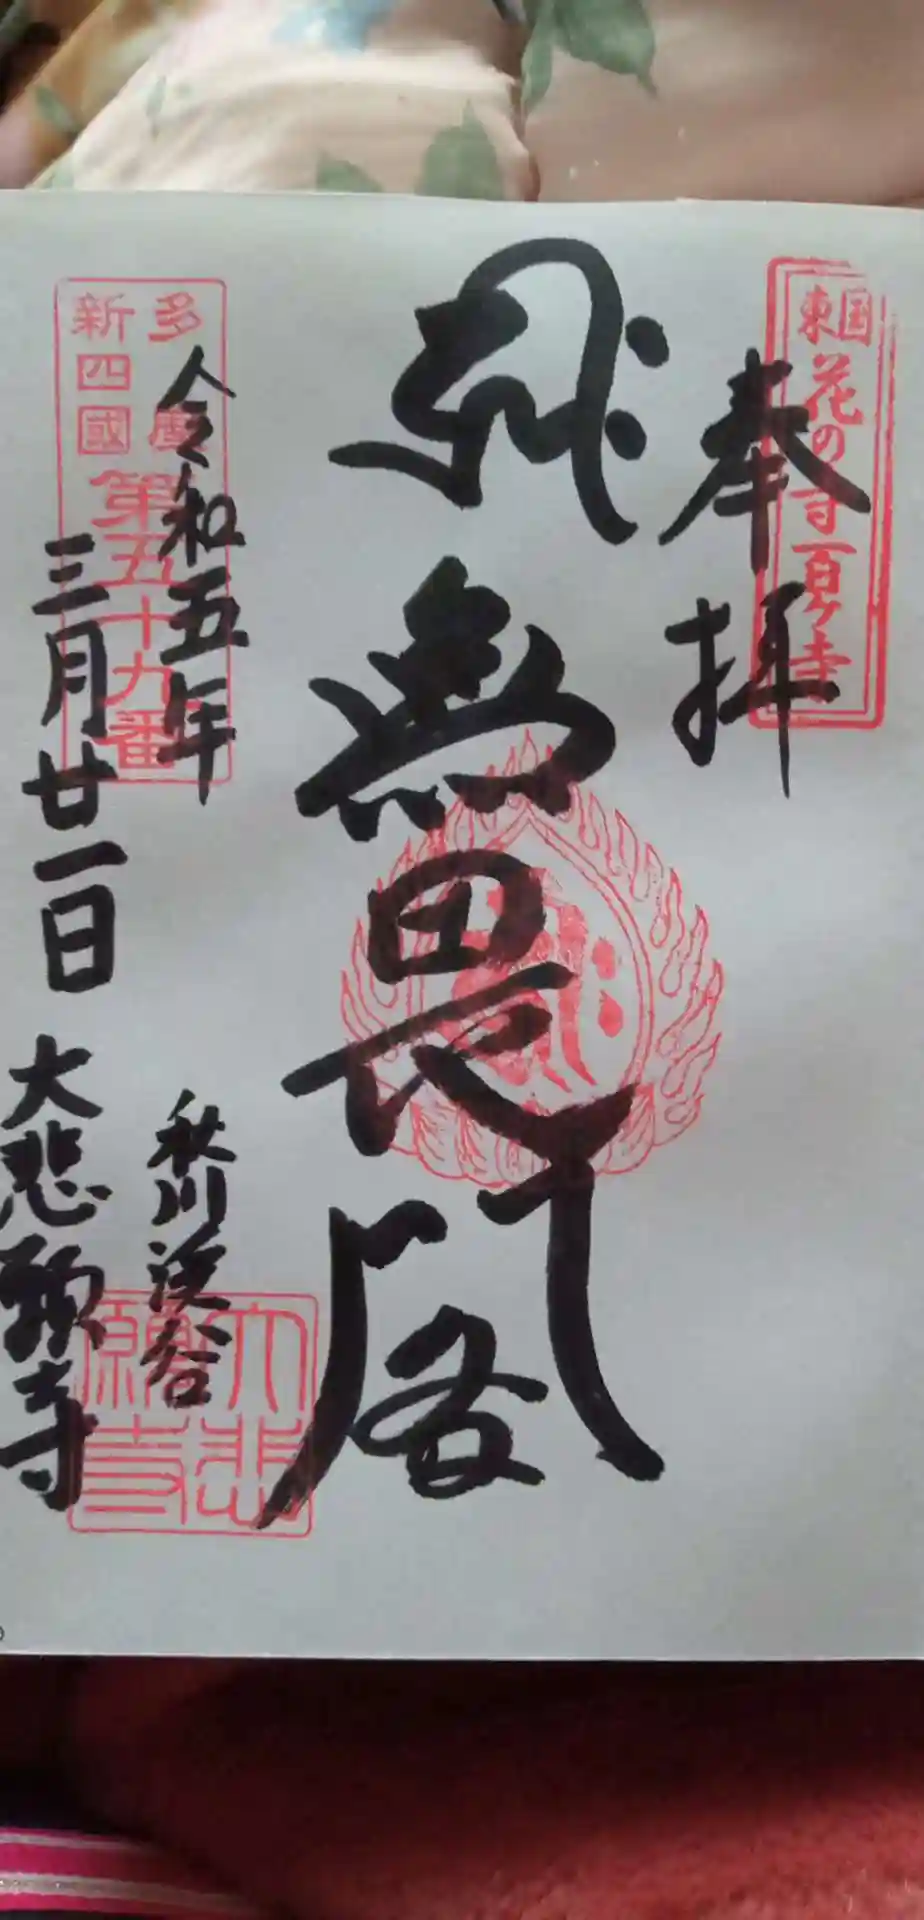 東国花の寺百ヶ寺
奉拝
無畏閣
多摩新四國
第五十九番
令和五年
三月廿一日
秋川渓谷
大悲願寺
大悲願寺